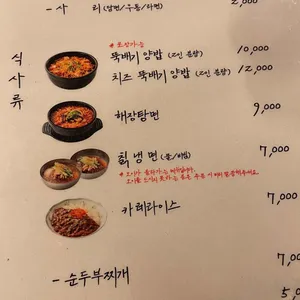 - 사 리 (당면/우동/라면) 2,000
식사류
* 포장가능
뚝배기 양밥 (2인 분량) 10,000
치즈 뚝배기 양밥 (2인 분량) 12,000
해장탕면 9,000
칡 냉 면 (물/비빔) 7,000
카레라이스 7,000
- 순두부찌개 7,0
5,0